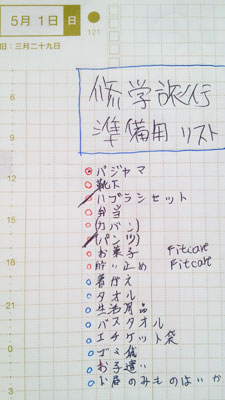 5月 1日 日
121
旧:三月二十九日
修学旅行
準備用リスト
パジャマ
靴下
ハブラシセット
弁当
(カバン)
(パンツ)
お菓子 Fitcare
酔い止め Fitcare
着がえ
タオル
生活用品
バスタオル
エチケット袋
ゴミ袋
お子遣い
お昼のみものはいか
12
15
18
21
0
3